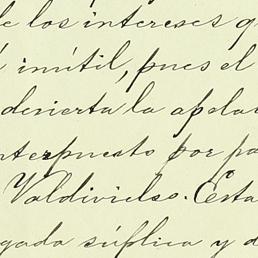 e los intereses q
inútil, pues el
desierta la apela
nterpuesto por pa
Valdivielso. Esta
gada súplica y d